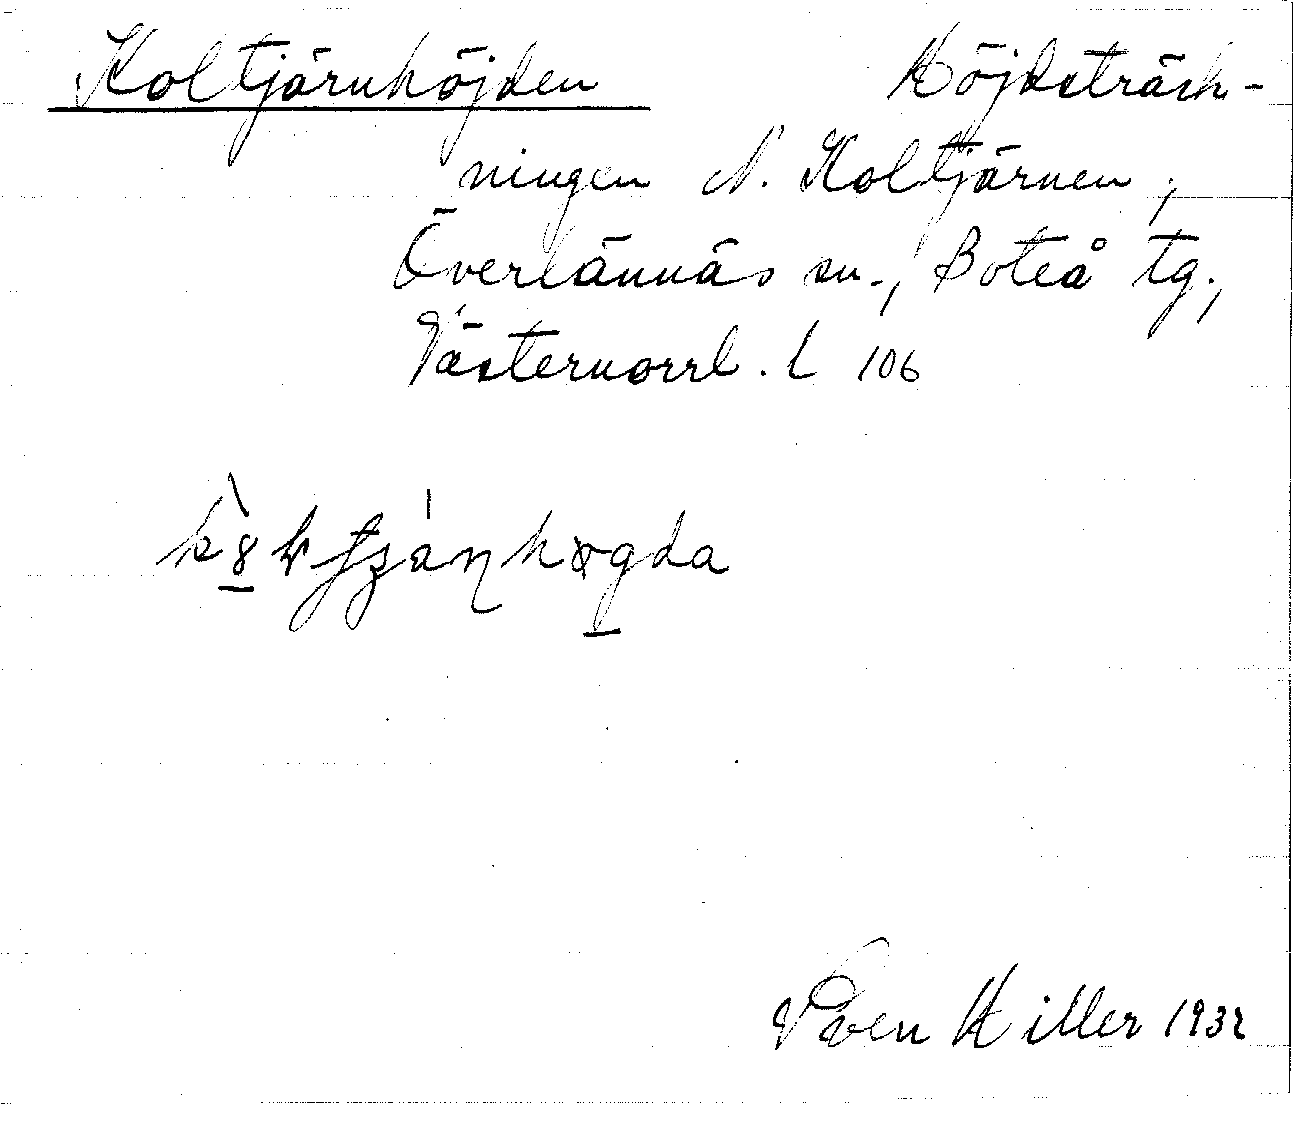 Koltjärnhöjden Höjdsträck-
ningen N. Koltjärnen,
Överlännäs sn., Boteå tg.,
Västernorrl. l 106
Sven Hiller 1932